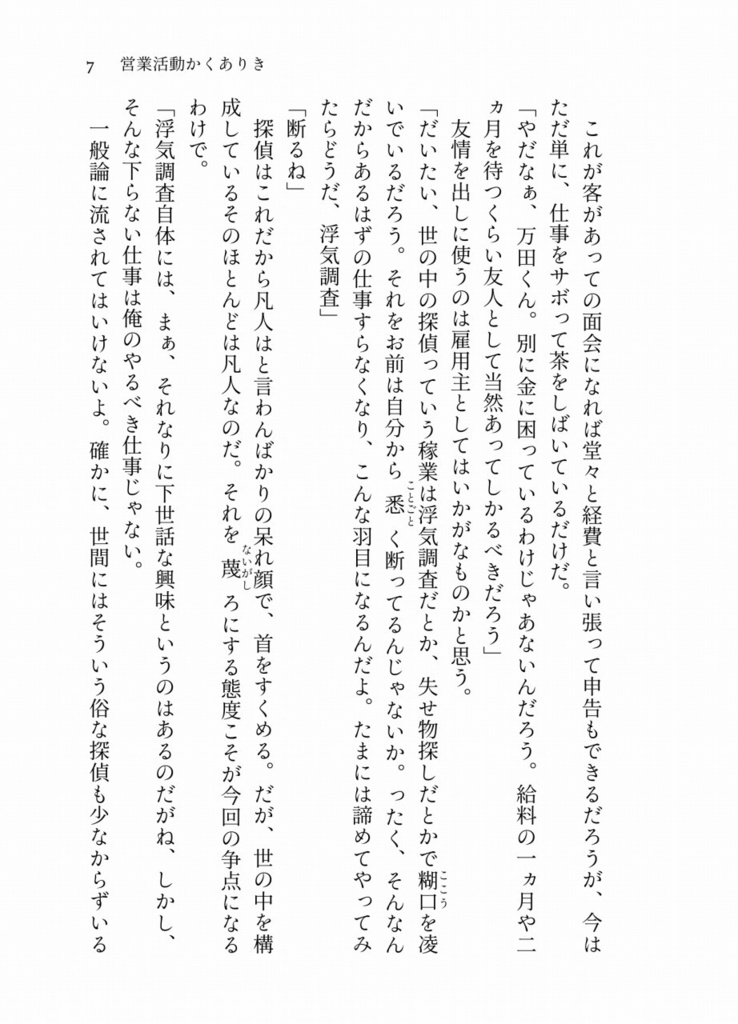 7 営業活動かくありき
これが客があっての面会になれば堂々と経費と言い張って申告もできるだろうが、今は
ただ単に、仕事をサボって茶をしばいているだけだ。
「やだなぁ、万田くん。別に金に困っているわけじゃあないんだろう。給料の一ヵ月や二
ヵ月を待つくらい友人として当然あってしかるべきだろう」
友情を出しに使うのは雇用主としてはいかがなものかと思う。
「だいたい、世の中の探偵っていう稼業は浮気調査だとか、失せ物探しだとかで糊口を凌
いでいるだろう。それをお前は自分から悉く断ってるんじゃないか。ったく、そんなん
だからあるはずの仕事すらなくなり、こんな羽目になるんだよ。たまには諦めてやってみ
たらどうだ、浮気調査」
「断るね」
探偵はこれだから凡人はと言わんばかりの呆れ顔で、首をすくめる。だが、世の中を構
成しているそのほとんどは凡人なのだ。それを蔑ろにする態度こそが今回の争点になる
わけで。
「浮気調査自体には、まぁ、それなりに下世話な興味というのはあるのだがね、しかし、
そんな下らない仕事は俺のやるべき仕事じゃない。
一般論に流されてはいけないよ。確かに、世間にはそういう俗な探偵も少なからずいる
ここう
ことごと
ないがし